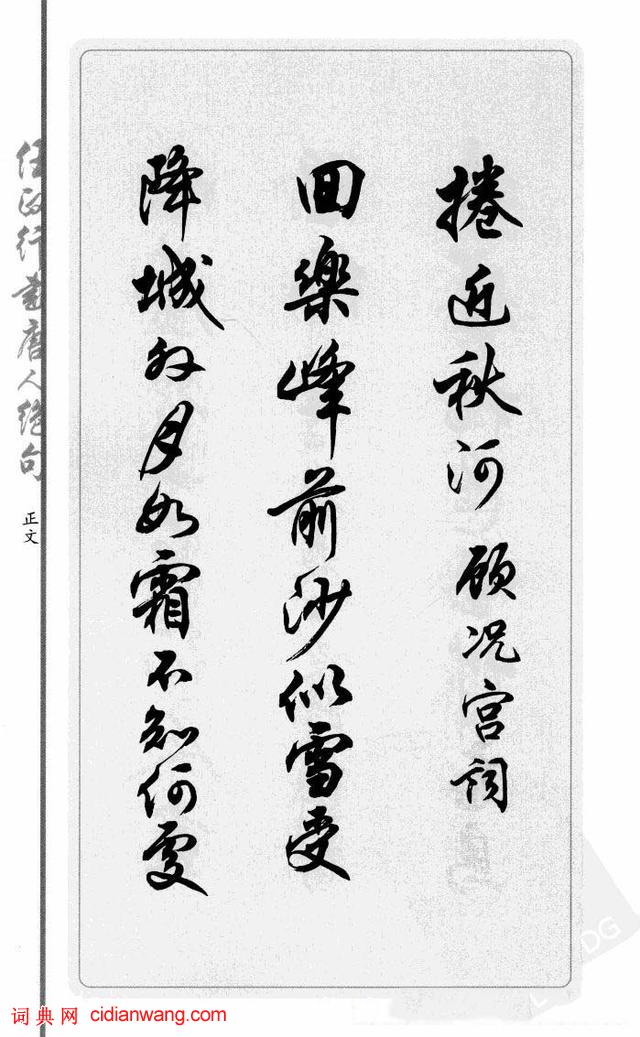 捲近秋河 顾况宫词
回樂峰前沙似雪受
降城外月如霜不知何處
任政行書唐人绝句
正文
词典网 cidianwang.com